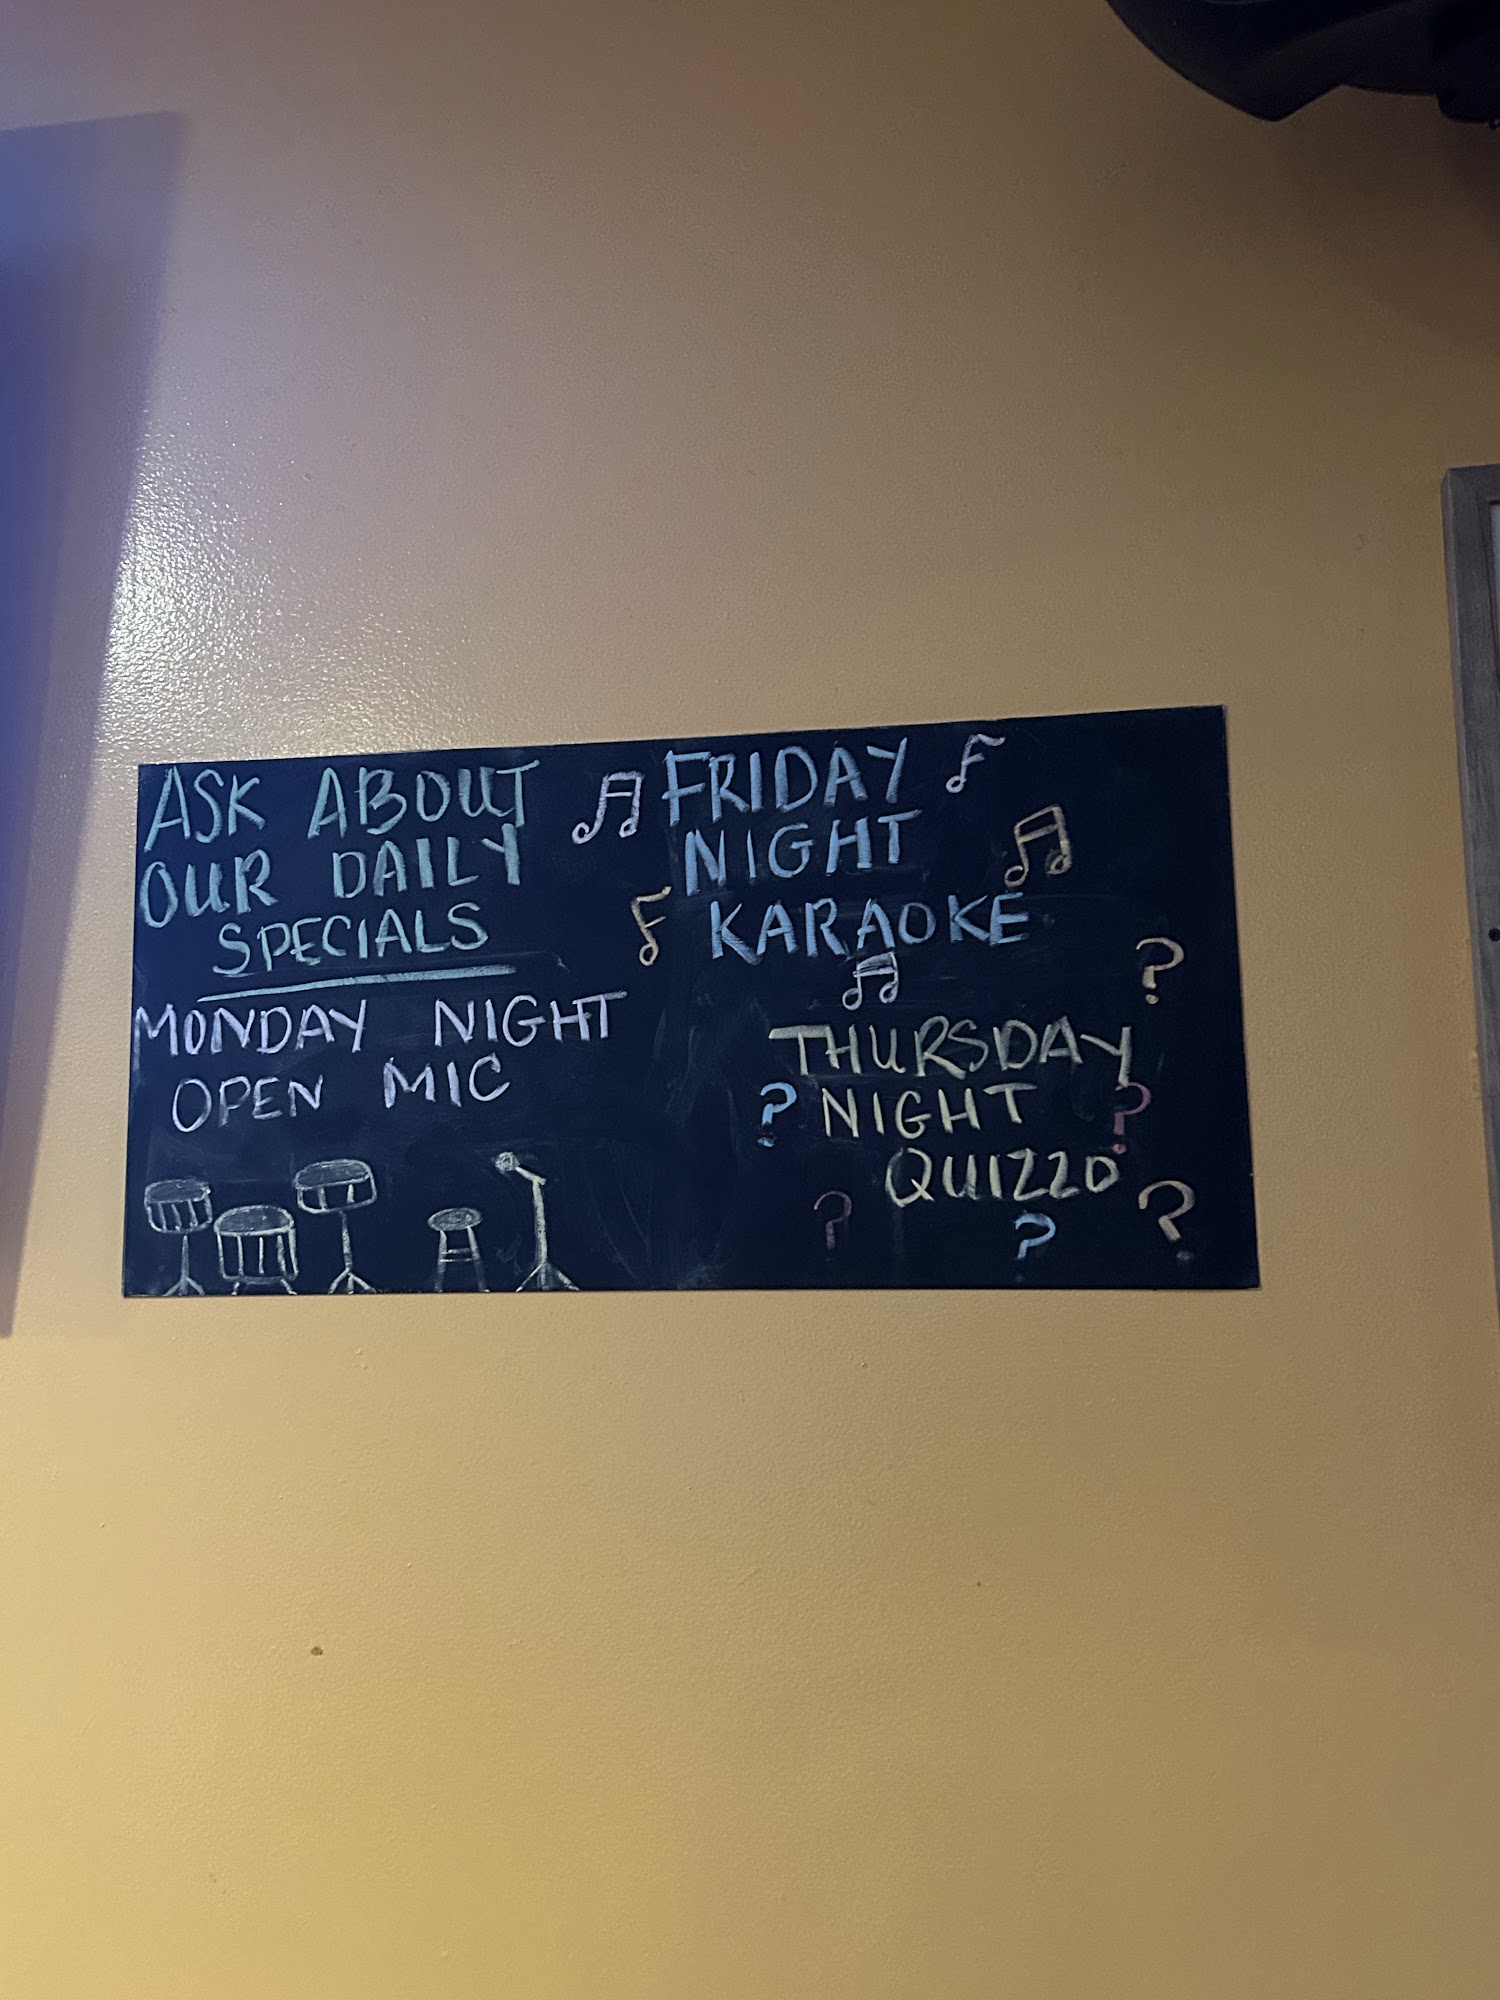 ASK ABOUT
OUR DAILY
SPECIALS
MONDAY NIGHT
OPEN MIC
FRIDAY
NIGHT
KARAOKE
?
THURSDAY
? NIGHT ?
QUIZZO
? ? ?